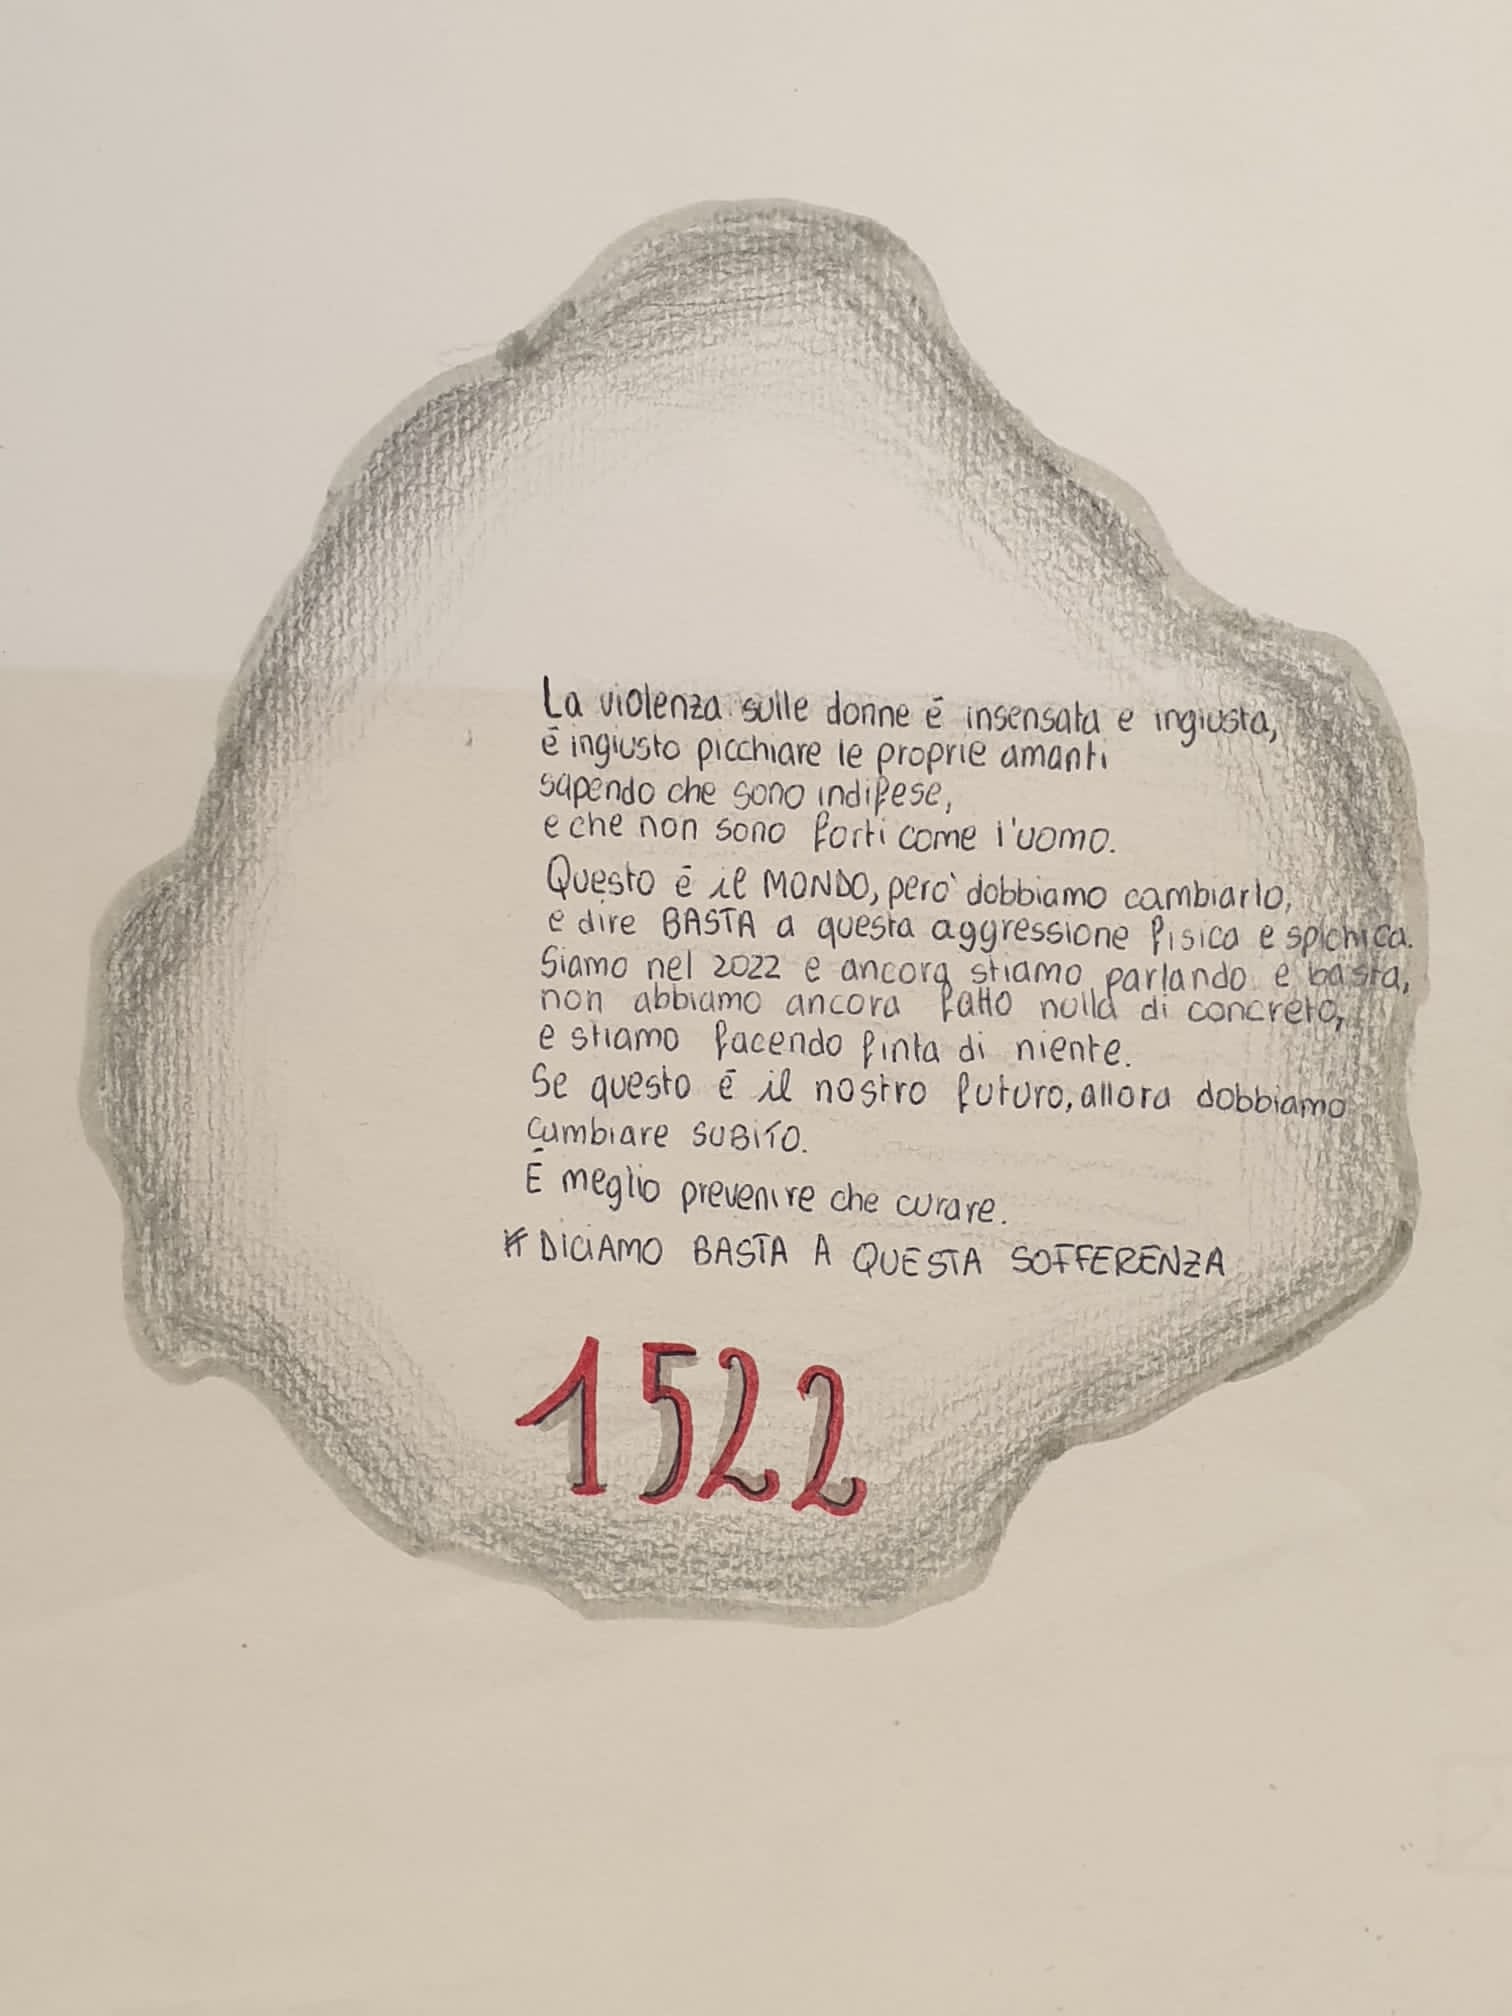 La violenza sulle donne é insensata e ingiusta,
é ingiusto picchiare le proprie amanti
sapendo che sono indifese,
e che non sono forti come l'uomo.
Questo é il MONDO, pero' dobbiamo cambiarlo,
e dire BASTA a questa aggressione fisica e spichica.
Siamo nel 2022 e ancora stiamo parlando e basta,
non abbiamo ancora fatto nulla di concreto,
e stiamo facendo finta di niente.
Se questo é il nostro futuro, allora dobbiamo
cambiare SUBITO.
É meglio prevenire che curare.
* DICIAMO BASTA A QUESTA SOFFERENZA
1522